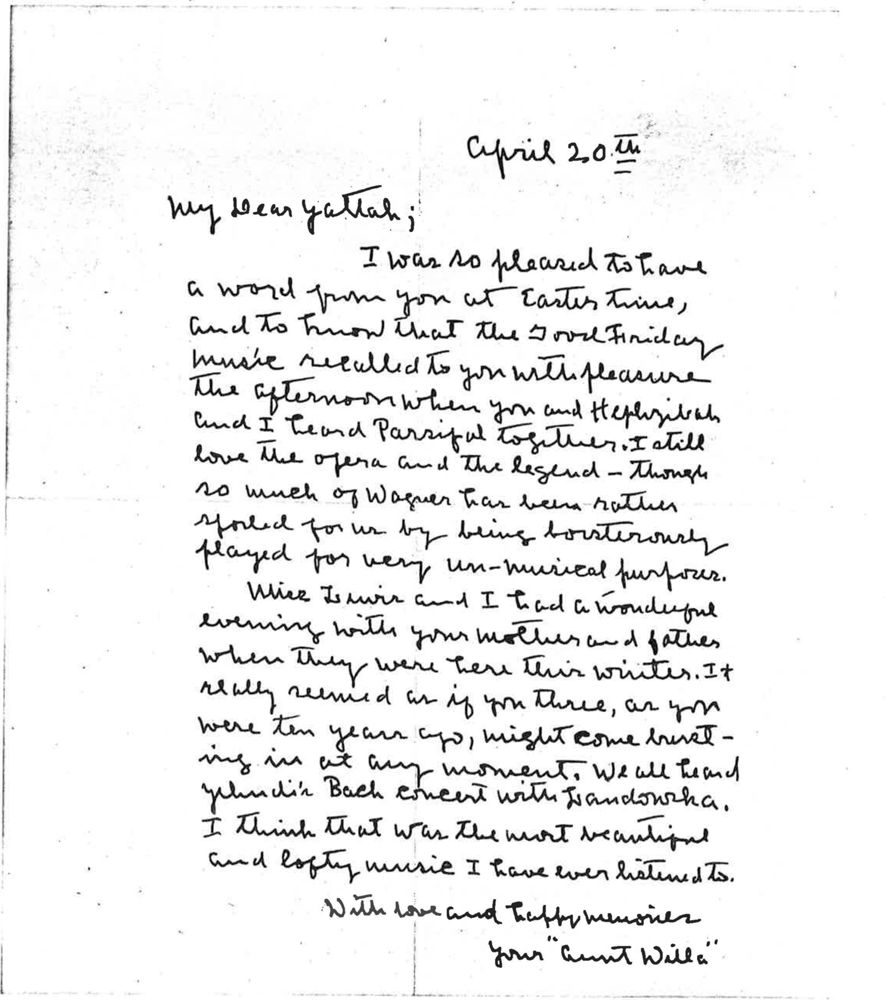 April 20th
My Dear Yaltah;
I was so pleased to have
a word from you at Easter time,
and to know that the Good Friday
music recalled to you with pleasure
the afternoon when you and Hephzibah
and I heard Parsifal together. I still
love the opera and the legend – though
so much of Wagner has been rather
spoiled for us by being boisterously
played for very un-musical purposes.
Miss Lewis and I had a wonderful
evening with your mother and father
when they were here this winter. It
really seemed as if you three, as you
were ten years ago, might come burst-
ing in at any moment. We all heard
Yehudi's Bach concert with Landowska.
I think that was the most beautiful
and lofty music I have ever listened to.
With love and happy memories
Your "Aunt Willa"